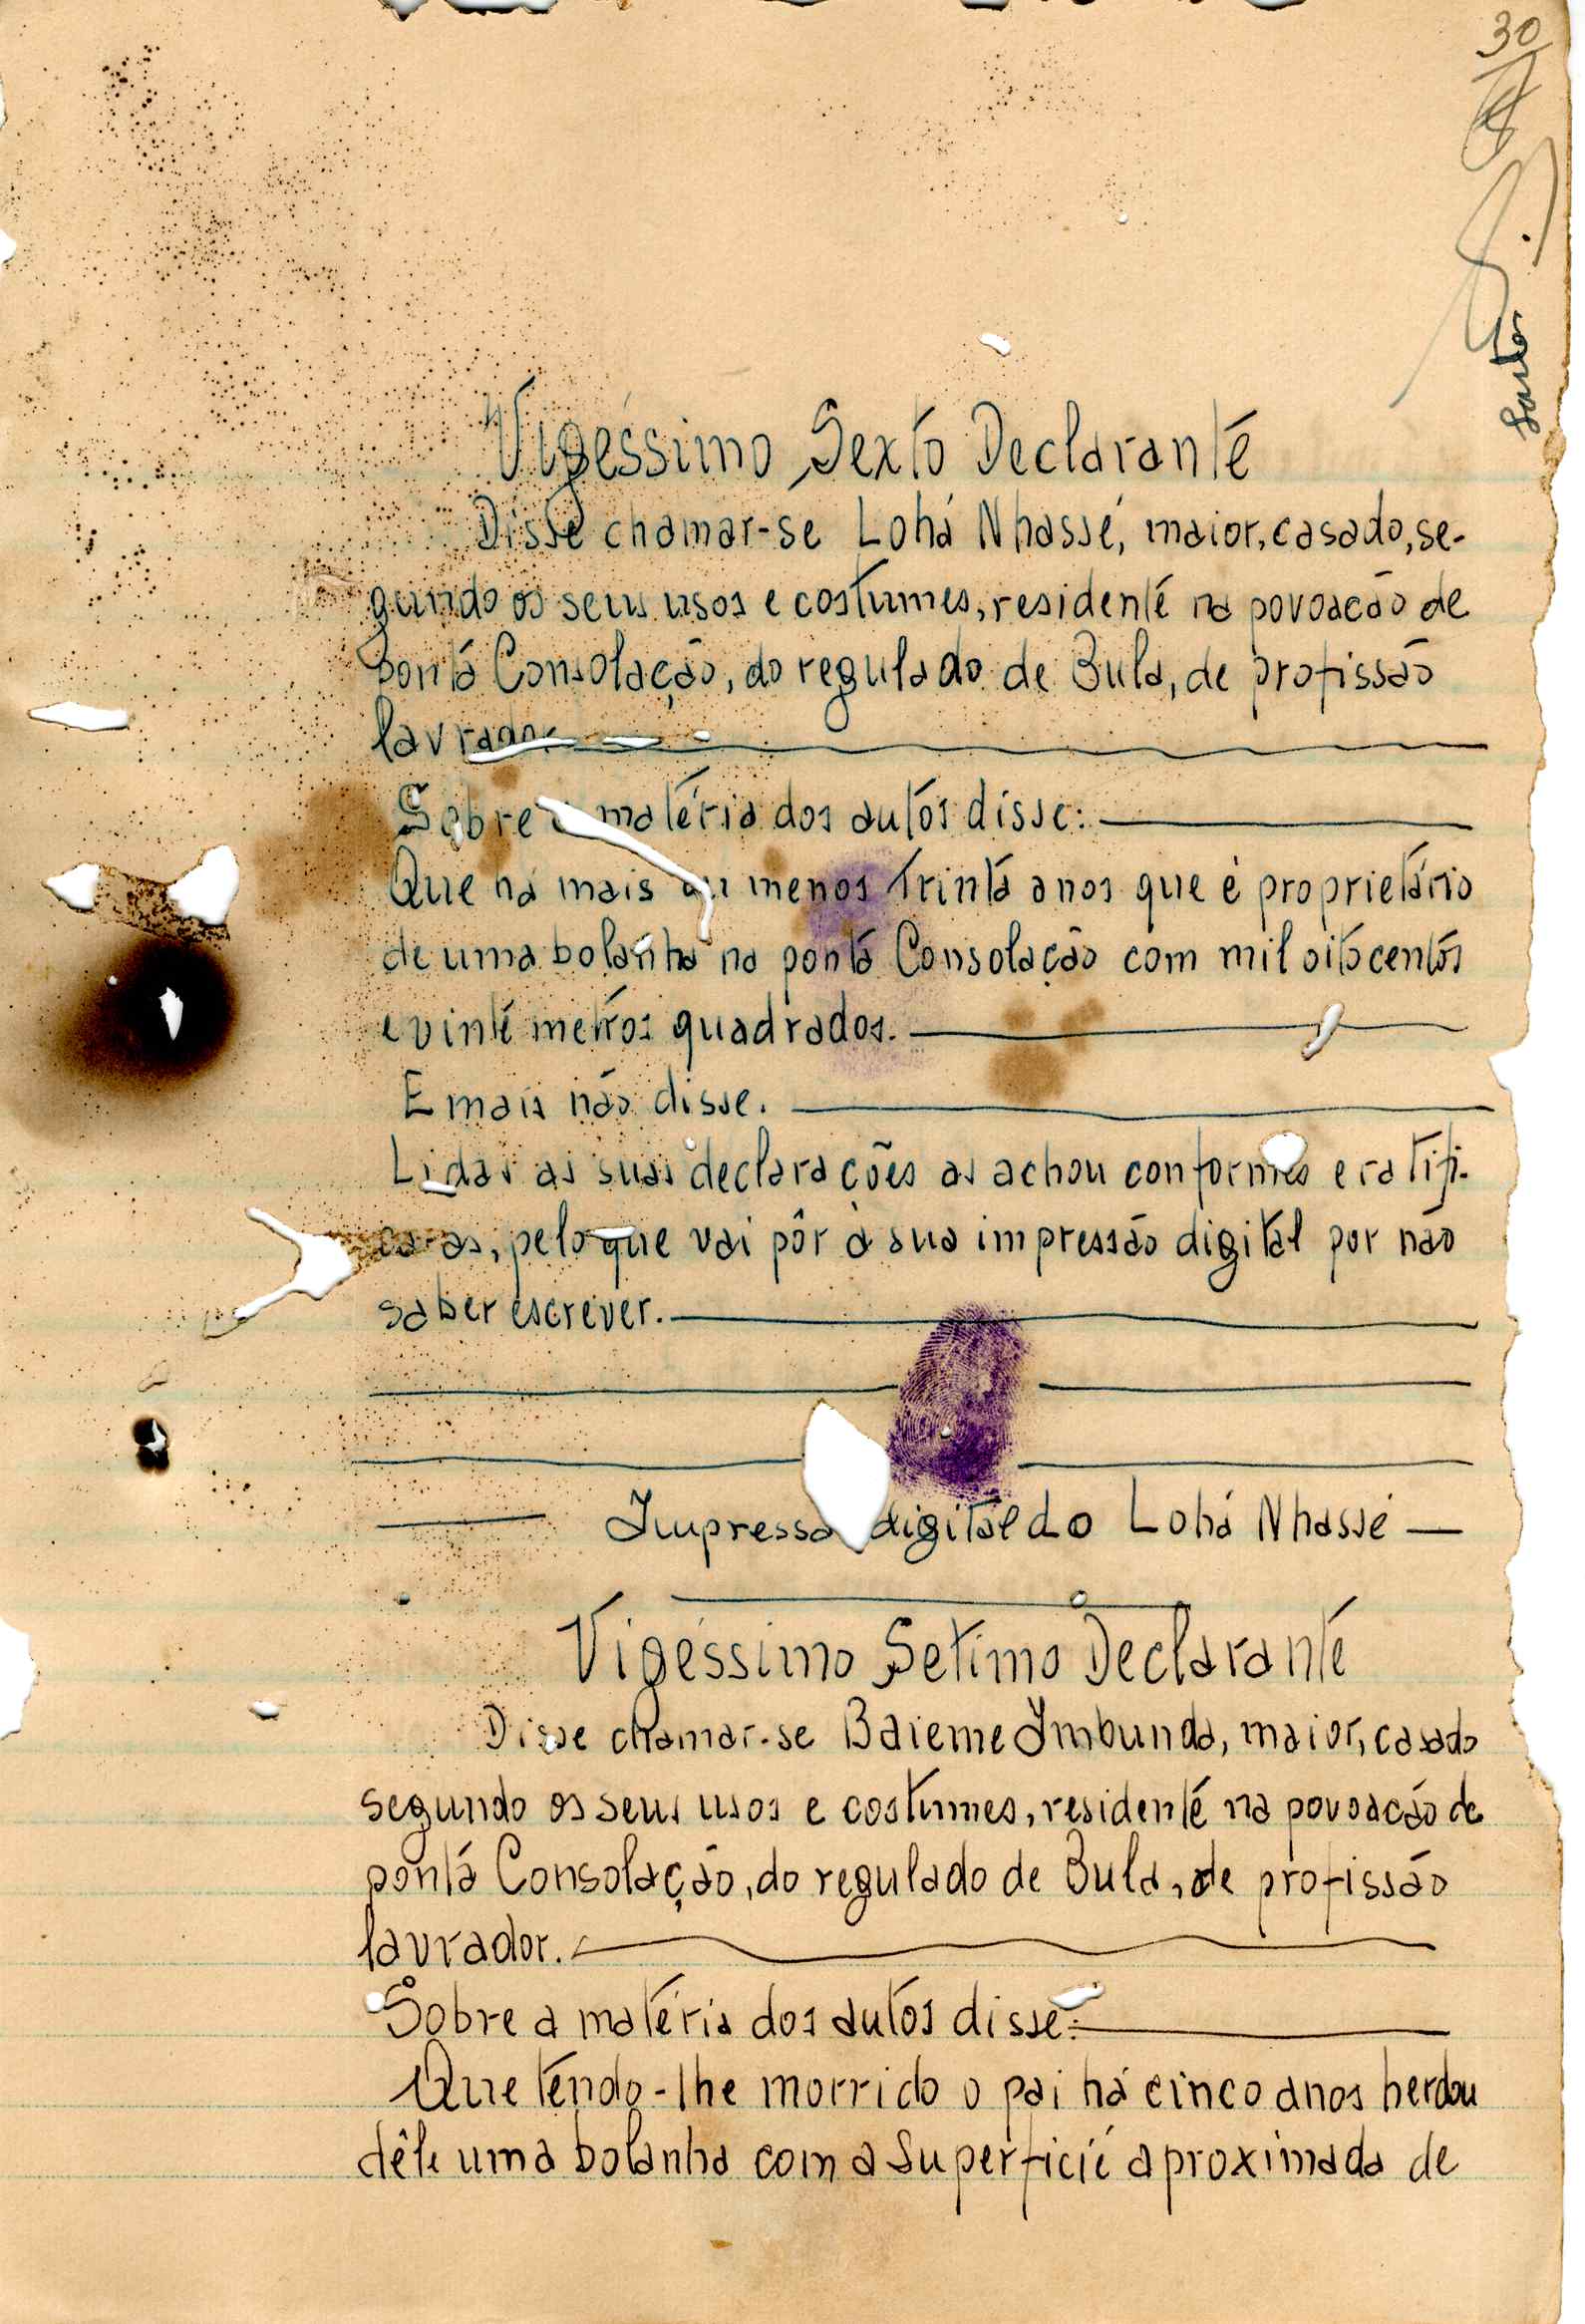 30
Santos
Vigéssimo Sexto Declarante
Disse chamar-se Lohá Nhassé, maior, casado, se-
gundo os seus usos e costumes, residente na povoacão de
ponta Consolação, do regulado de Bula, de profissão
lavrador
Sobre a matéria dos autos disse:
Que há mais ou menos trinta anos que é proprietário
de uma bolanha na ponta Consolação com mil oitocentos
e vinte metros quadrados.
E mais não disse.
Lidas as suas declarações as achou conformes e ratifi-
ca-as, pelo que vai pôr à sua impressão digital por não
saber escrever.
Impressão digital do Lohá Nhassé
Vigéssimo Setimo Declarante
Disse chamar-se Baieme Imbunda, maior, casado
segundo os seus usos e costumes, residente na povoacão de
ponta Consolação, do regulado de Bula, de profissão
lavrador.
Sobre a matéria dos autos disse:
Que tendo-lhe morrido o pai há cinco anos herdou
dêle uma bolanha com a superficie aproximada de